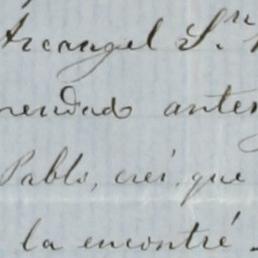 Arcangel Sn.
rendado antes
Pablo, creí que
la encontré